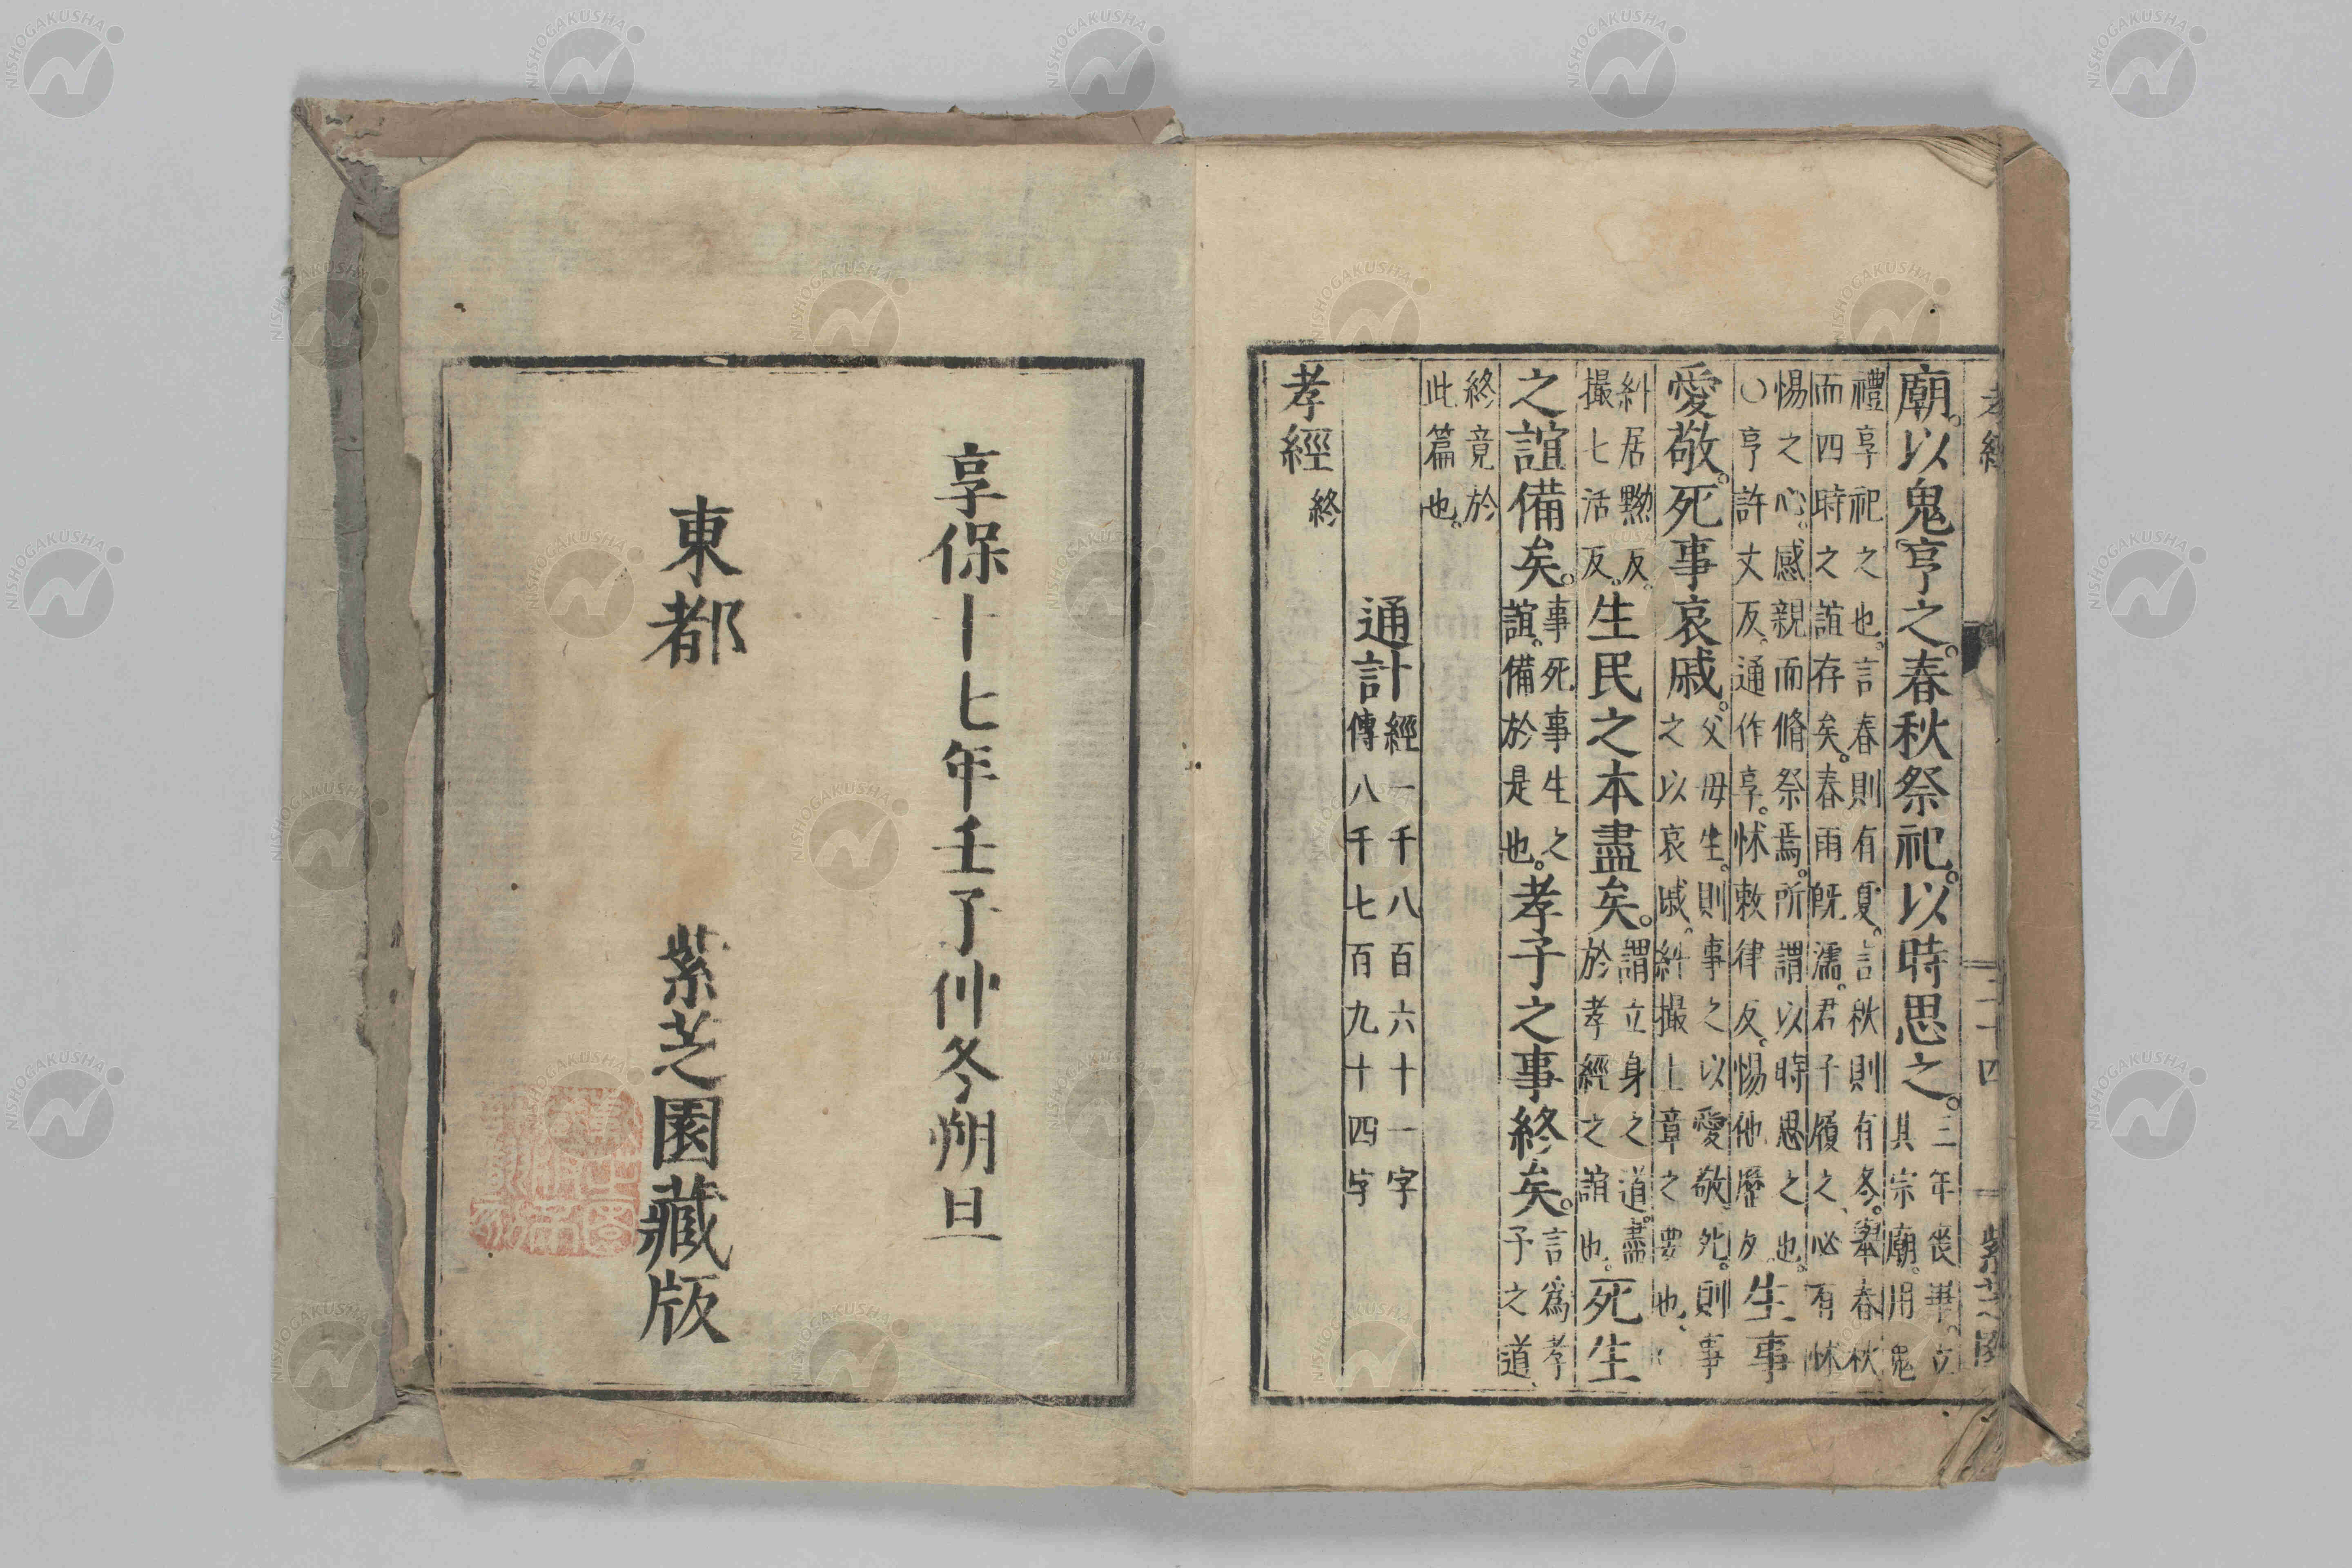 孝經 三十四 紫芝園
廟。以鬼亨之。春秋祭祀。以時思之。三年喪畢。立其宗廟。用鬼
禮享祀之也。言春則有夏。言秋則有冬。舉春秋
而四時之誼存矣。春雨既濡。君子履之、必有怵
惕之心。感親而脩祭焉。所謂以時思之也。
○亨許丈反。通作享。怵敕律反。惕他歷夕 生事
愛敬。死事哀戚。父毋生。則事之以愛敬。死。則事之以哀戚。糾撮上章之要也、
糾居黝反。撮七活反。生民之本盡矣。謂立身之道。盡於孝經之誼也。死生
之誼備矣。事死事生之誼。備於是也。孝子之事終矣。言爲孝子之道
終竟於此篇也。
通計 經一千八百六十一字 傳八千七百九十四字
孝經 終
享保十七年壬子仲冬朔旦
東都 紫芝園藏版